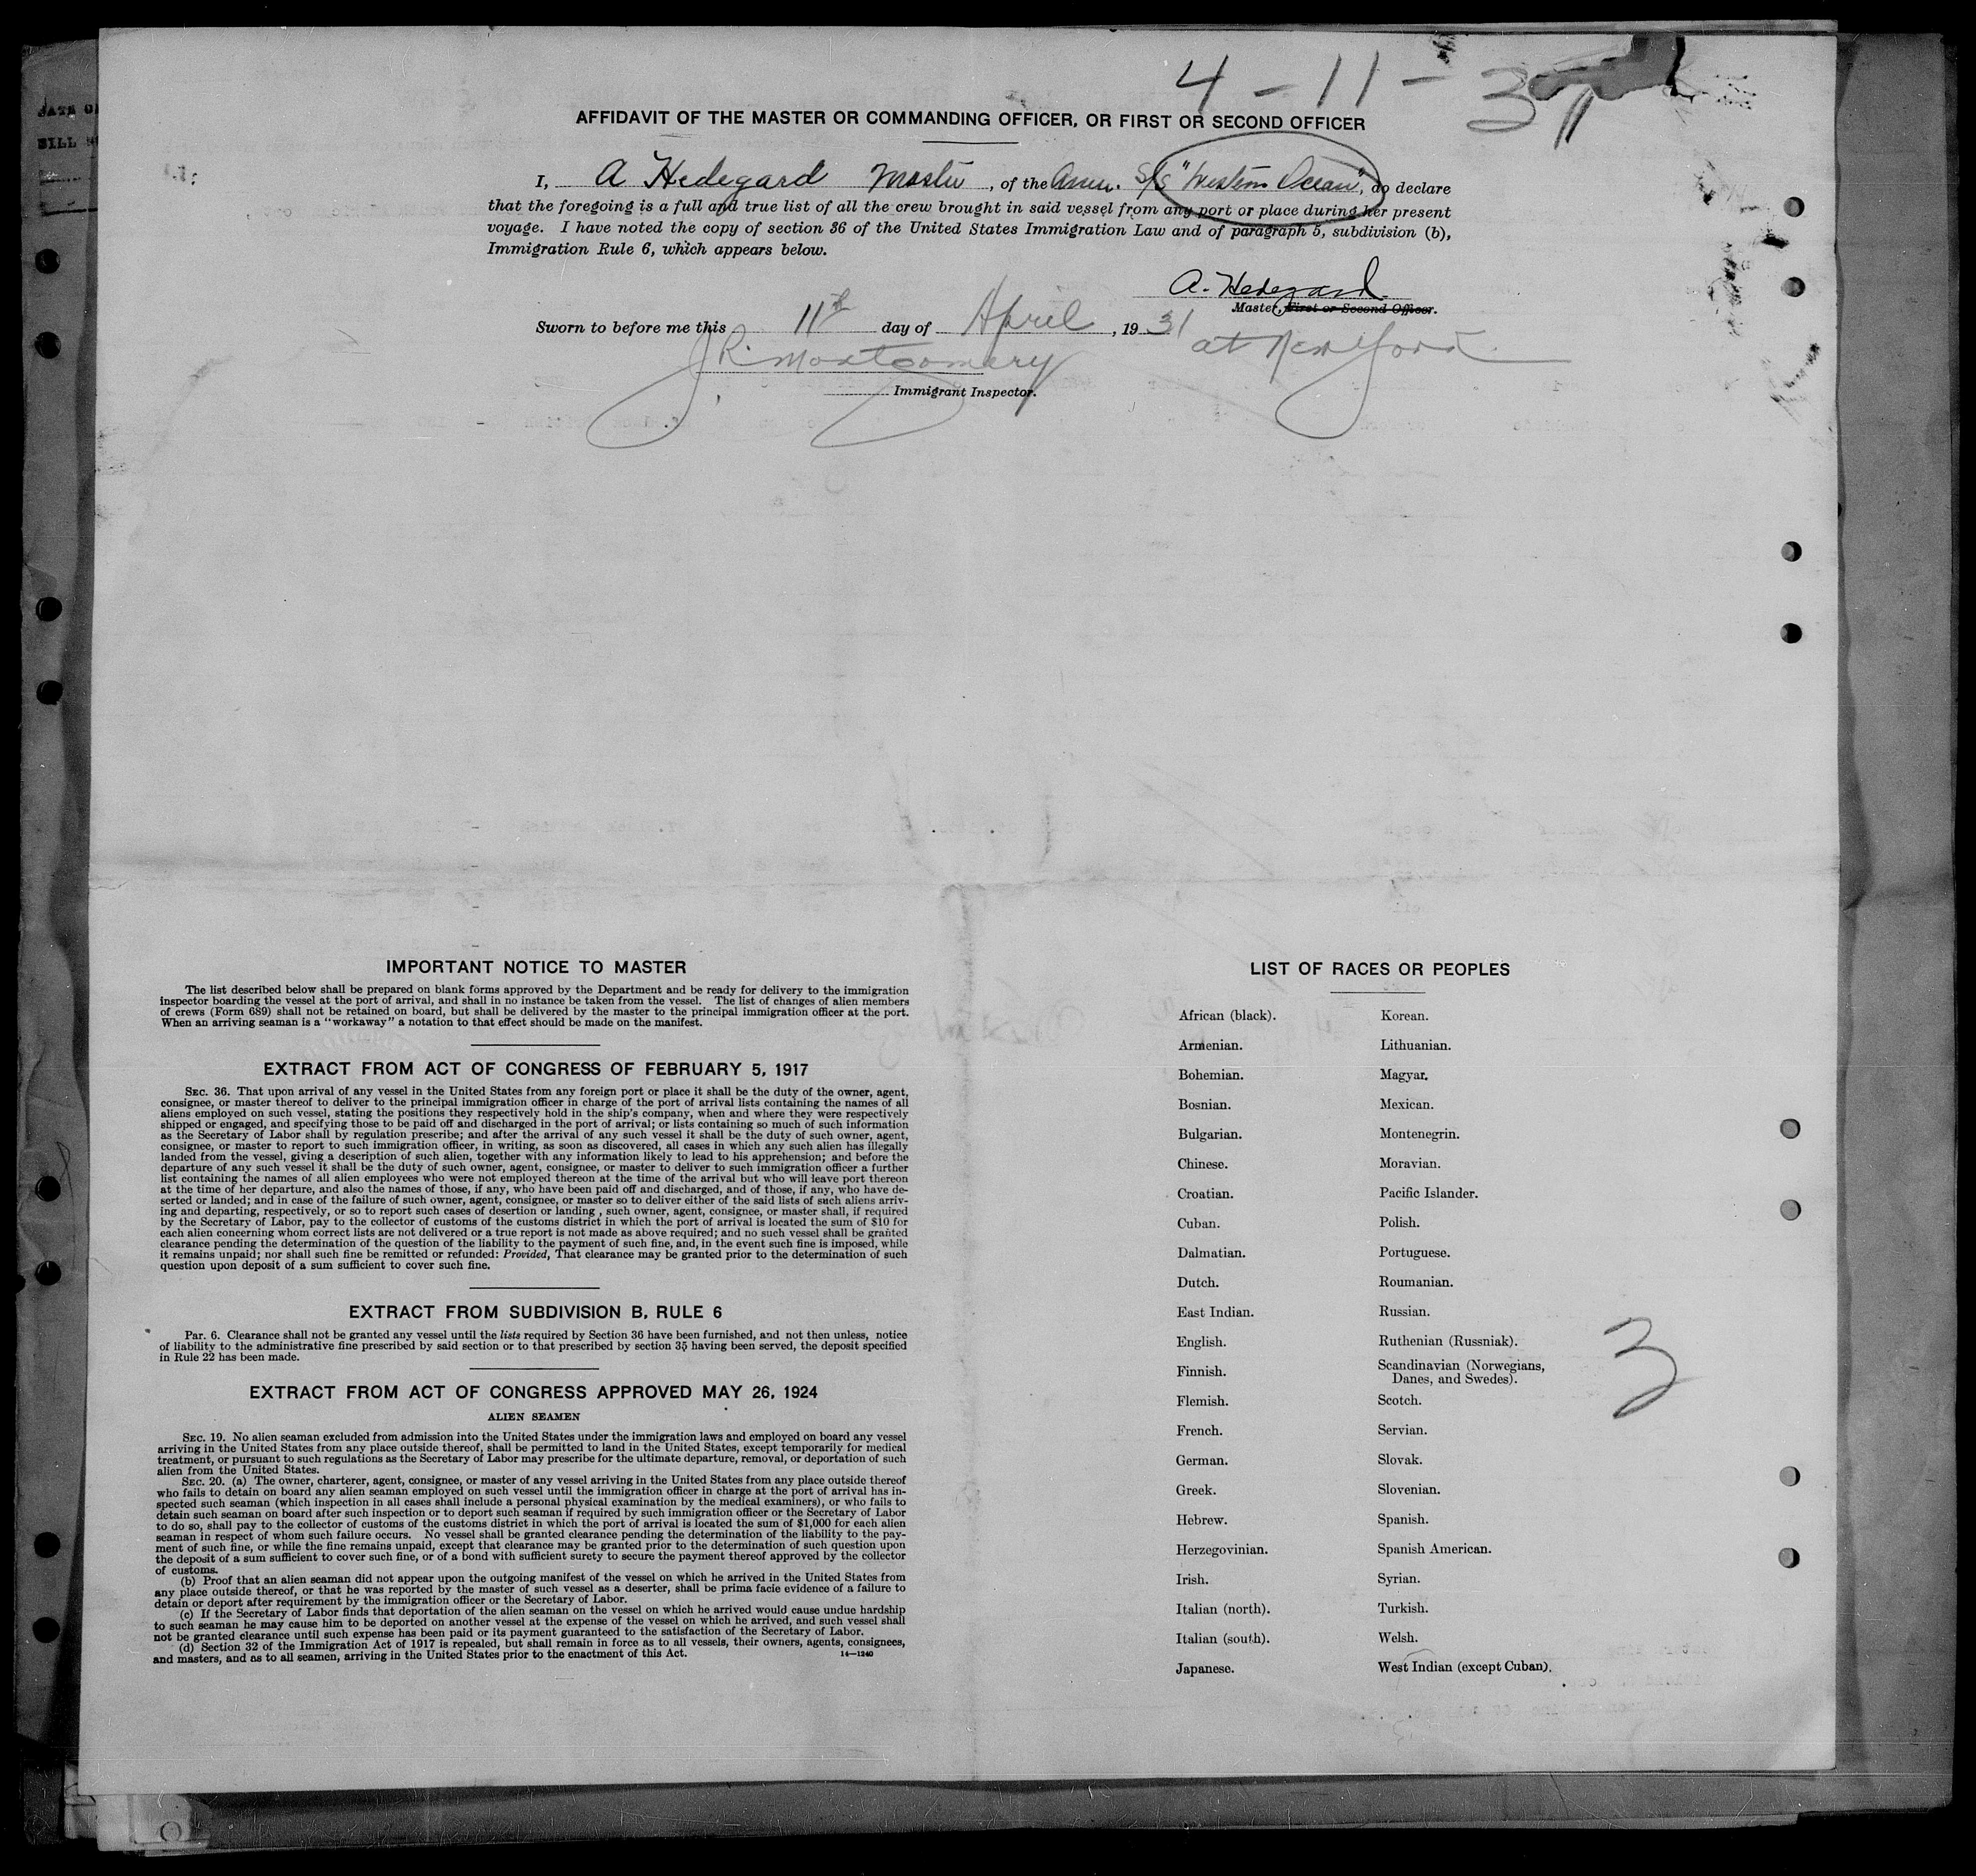 4 - 11 - 31
AFFIDAVIT OF THE MASTER OR COMMANDING OFFICER, OR FIRST OR SECOND OFFICER
I, A Hedegard Master, of the Amer. S/S "Western Ocean", do declare
that the foregoing is a full and true list of all the crew brought in said vessel from any port or place during her present
voyage. I have noted the copy of section 36 of the United States Immigration Law and of paragraph 5, subdivision (b),
Immigration Rule 6, which appears below.
A. Hedegard
Master, First or Second Officer.
Sworn to before me this 11th day of April, 1931
at New York
J R Montgomery
Immigrant Inspector.
IMPORTANT NOTICE TO MASTER
The list described below shall be prepared on blank forms approved by the Department and be ready for delivery to the immigration
inspector boarding the vessel at the port of arrival, and shall in no instance be taken from the vessel. The list of changes of alien members
of crews (Form 689) shall not be retained on board, but shall be delivered by the master to the principal immigration officer at the port.
When an arriving seaman is a "workaway" a notation to that effect should be made on the manifest.
EXTRACT FROM ACT OF CONGRESS OF FEBRUARY 5, 1917
SEC. 36. That upon arrival of any vessel in the United States from any foreign port or place it shall be the duty of the owner, agent,
consignee, or master thereof to deliver to the principal immigration officer in charge of the port of arrival lists containing the names of all
aliens employed on such vessel, stating the positions they respectively hold in the ship's company, when and where they were respectively
shipped or engaged, and specifying those to be paid off and discharged in the port of arrival; or lists containing so much of such information
as the Secretary of Labor shall by regulation prescribe; and after the arrival of any such vessel it shall be the duty of such owner, agent,
consignee, or master to report to such immigration officer, in writing, as soon as discovered, all cases in which any such alien has illegally
landed from the vessel, giving a description of such alien, together with any information likely to lead to his apprehension; and before the
departure of any such vessel it shall be the duty of such owner, agent, consignee, or master to deliver to such immigration officer a further
list containing the names of all alien employees who were not employed thereon at the time of the arrival but who will leave port thereon
at the time of her departure, and also the names of those, if any, who have been paid off and discharged, and of those, if any, who have de-
serted or landed; and in case of the failure of such owner, agent, consignee, or master so to deliver either of the said lists of such aliens arriv-
ing and departing, respectively, or so to report such cases of desertion or landing , such owner, agent, consignee, or master shall, if required
by the Secretary of Labor, pay to the collector of customs of the customs district in which the port of arrival is located the sum of $10 for
each alien concerning whom correct lists are not delivered or a true report is not made as above required; and no such vessel shall be granted
clearance pending the determination of the question of the liability to the payment of such fine, and, in the event such fine is imposed, while
it remains unpaid; nor shall such fine be remitted or refunded: Provided, That clearance may be granted prior to the determination of such
question upon deposit of a sum sufficient to cover such fine.
EXTRACT FROM SUBDIVISION B, RULE 6
Par. 6. Clearance shall not be granted any vessel until the lists required by Section 36 have been furnished, and not then unless, notice
of liability to the administrative fine prescribed by said section or to that prescribed by section 35 having been served, the deposit specified
in Rule 22 has been made.
EXTRACT FROM ACT OF CONGRESS APPROVED MAY 26, 1924
ALIEN SEAMEN
SEC. 19. No alien seaman excluded from admission into the United States under the immigration laws and employed on board any vessel
arriving in the United States from any place outside thereof, shall be permitted to land in the United States, except temporarily for medical
treatment, or pursuant to such regulations as the Secretary of Labor may prescribe for the ultimate departure, removal, or deportation of such
alien from the United States.
SEC. 20. (a) The owner, charterer, agent, consignee, or master of any vessel arriving in the United States from any place outside thereof
who fails to detain on board any alien seaman employed on such vessel until the immigration officer in charge at the port of arrival has in-
spected such seaman (which inspection in all cases shall include a personal physical examination by the medical examiners), or who fails to
detain such seaman on board after such inspection or to deport such seaman if required by such immigration officer or the Secretary of Labor
to do so, shall pay to the collector of customs of the customs district in which the port of arrival is located the sum of $1,000 for each alien
seaman in respect of whom such failure occurs. No vessel shall be granted clearance pending the determination of the liability to the pay-
ment of such fine, or while the fine remains unpaid, except that clearance may be granted prior to the determination of such question upon
the deposit of a sum sufficient to cover such fine, or of a bond with sufficient surety to secure the payment thereof approved by the collector
of customs.
(b) Proof that an alien seaman did not appear upon the outgoing manifest of the vessel on which he arrived in the United States from
any place outside thereof, or that he was reported by the master of such vessel as a deserter, shall be prima facie evidence of a failure to
detain or deport after requirement by the immigration officer or the Secretary of Labor.
(c) If the Secretary of Labor finds that deportation of the alien seaman on the vessel on which he arrived would cause undue hardship
to such seaman he may cause him to be deported on another vessel at the expense of the vessel on which he arrived, and such vessel shall
not be granted clearance until such expense has been paid or its payment guaranteed to the satisfaction of the Secretary of Labor.
(d) Section 32 of the Immigration Act of 1917 is repealed, but shall remain in force as to all vessels, their owners, agents, consignees,
and masters, and as to all seamen, arriving in the United States prior to the enactment of this Act.
14—1240
LIST OF RACES OR PEOPLES
African (black). Korean.
Armenian. Lithuanian.
Bohemian. Magyar.
Bosnian. Mexican.
Bulgarian. Montenegrin.
Chinese. Moravian.
Croatian. Pacific Islander.
Cuban. Polish.
Dalmatian. Portuguese.
Dutch. Roumanian.
East Indian. Russian.
English. Ruthenian (Russniak).
Finnish. Scandinavian (Norwegians,
Danes, and Swedes).
Flemish. Scotch.
French. Servian.
German. Slovak.
Greek. Slovenian.
Hebrew. Spanish.
Herzegovinian. Spanish American.
Irish. Syrian.
Italian (north). Turkish.
Italian (south). Welsh.
Japanese. West Indian (except Cuban).
3